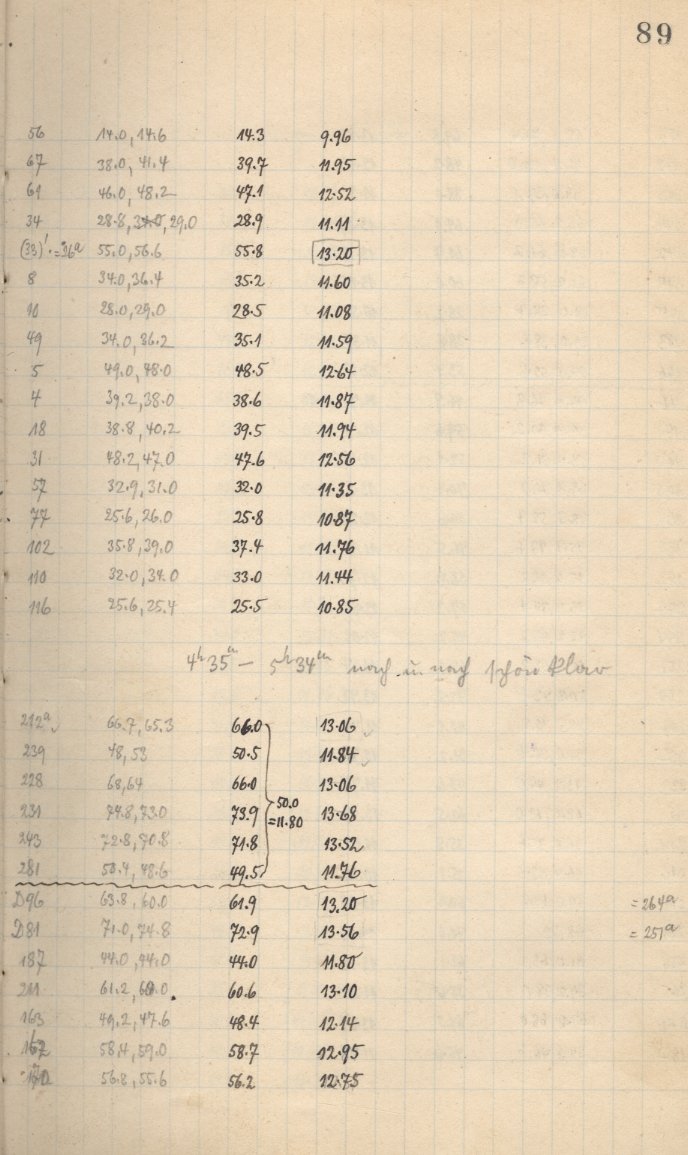 89
56 14.0, 14.6 14.3 9.96
67 38.0, 41.4 39.7 11.95
61 46.0, 48.2 47.1 12.52
34 28.8, 31.0, 29.0 28.9 11.11
(33)' = 36a 55.0, 56.6 55.8 13.20
8 34.0, 36.4 35.2 11.60
10 28.0, 29.0 28.5 11.08
49 34.0, 36.2 35.1 11.59
5 49.0, 48.0 48.5 12.64
4 39.2, 38.0 38.6 11.87
18 38.8, 40.2 39.5 11.94
31 48.2, 47.0 47.6 12.56
57 32.9, 31.0 32.0 11.35
77 25.6, 26.0 25.8 10.87
102 35.8, 39.0 37.4 11.76
110 32.0, 34.0 33.0 11.44
116 25.6, 25.4 25.5 10.85
4h 35m – 5h 34m nach u. nach schön klar
212a 66.7, 65.3 66.0 13.06
239 48, 53 50.5 11.84
228 68, 64 66.0 13.06
231 74.8, 73.0 73.9 13.68
50.0
= 11.80
243 72.8, 70.8 71.8 13.52
281 50.4, 48.6 49.5 11.76
D96 63.8, 60.0 61.9 13.20 = 264a
D81 71.0, 74.8 72.9 13.56 = 251a
187 44.0, 44.0 44.0 11.80
211 61.2, 60.0 60.6 13.10
163 49.2, 47.6 48.4 12.14
167 58.4, 59.0 58.7 12.95
170 56.8, 55.6 56.2 12.75